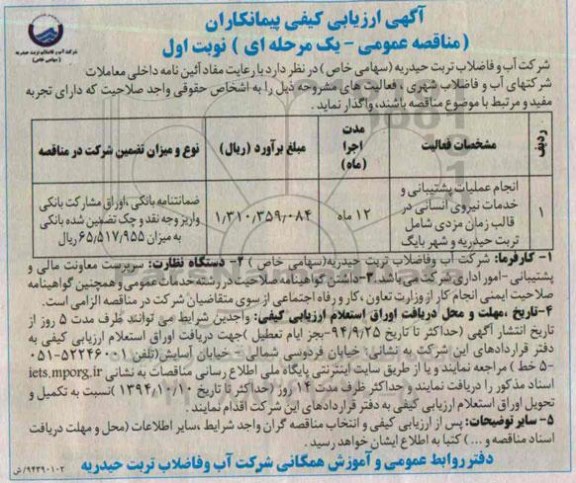 آگهی ارزیابی کیفی پیمانکاران
(مناقصه عمومی - یک مرحله ای ) نوبت اول
شرکت آب و فاضلاب تربت حیدریه
(سهامی خاص)
شرکت آب و فاضلاب تربت حیدریه (سهامی خاص) در نظر دارد با رعایت مفاد آئین نامه داخلی معاملات
شرکتهای آب و فاضلاب شهری ، فعالیت های مشروحه ذیل را به اشخاص حقوقی واجد صلاحیت که دارای تجربه
مفید و مرتبط با موضوع مناقصه باشند، واگذار نماید .
ردیف
مشخصات فعالیت
مدت
اجرا
(ماه)
مبلغ برآورد (ریال)
نوع و میزان تضمین شرکت در مناقصه
۱
انجام عملیات پشتیبانی و
خدمات نیروی انسانی در
قالب زمان مزدی شامل
تربت حیدریه و شهر بایگ
۱۲ ماه
۱/۳۱۰/۳۵۹/۰۸۴
ضمانتنامه بانکی ،اوراق مشارکت بانکی
واریز وجه نقد و چک تضمین شده بانکی
به میزان ۶۵/۵۱۷/۹۵۵ ریال
۱- کارفرما: شرکت آب وفاضلاب تربت حیدریه(سهامی خاص ) ۲- دستگاه نظارت: سرپرست معاونت مالی و
پشتیبانی-امور اداری شرکت می باشد. ۳-داشتن گواهینامه صلاحیت در رشته خدمات عمومی و همچنین گواهینامه
صلاحیت ایمنی انجام کار از وزارت تعاون ،کار و رفاه اجتماعی از سوی متقاضیان شرکت در مناقصه الزامی است.
۴-تاریخ ،مهلت و محل دریافت اوراق استعلام ارزیابی کیفی: واجدین شرایط می توانند ظرف مدت ۵ روز از
تاریخ انتشار آگهی (حداکثر تا تاریخ ۹۴/۹/۲۵-بجز ایام تعطیل )جهت دریافت اوراق استعلام ارزیابی کیفی به
دفتر قراردادهای این شرکت به نشانی: خیابان فردوسی شمالی - خیابان آسایش(تلفن ۵۲۲۴۶۰۰۱-۰۵۱
-۵ خط ) مراجعه نمایند و یا از طریق سایت اینترنتی پایگاه ملی اطلاع رسانی مناقصات به نشانی iets.mporg.ir
اسناد مذکور را دریافت نمایند و حداکثر ظرف مدت ۱۴ روز (حداکثر تا تاریخ ۱۳۹۴/۱۰/۱۰ )نسبت به تکمیل و
تحویل اوراق استعلام ارزیابی کیفی به دفتر قراردادهای این شرکت اقدام نمایند .
۵- سایر توضیحات: پس از ارزیابی کیفی و انتخاب مناقصه گران واجد شرایط ،سایر اطلاعات (محل و مهلت دریافت
اسناد مناقصه و ... ) کتبا به اطلاع ایشان خواهد رسید .
دفتر روابط عمومی و آموزش همگانی شرکت آب وفاضلاب تربت حیدریه
۹۴۳۹۰۱۰۲/ ش